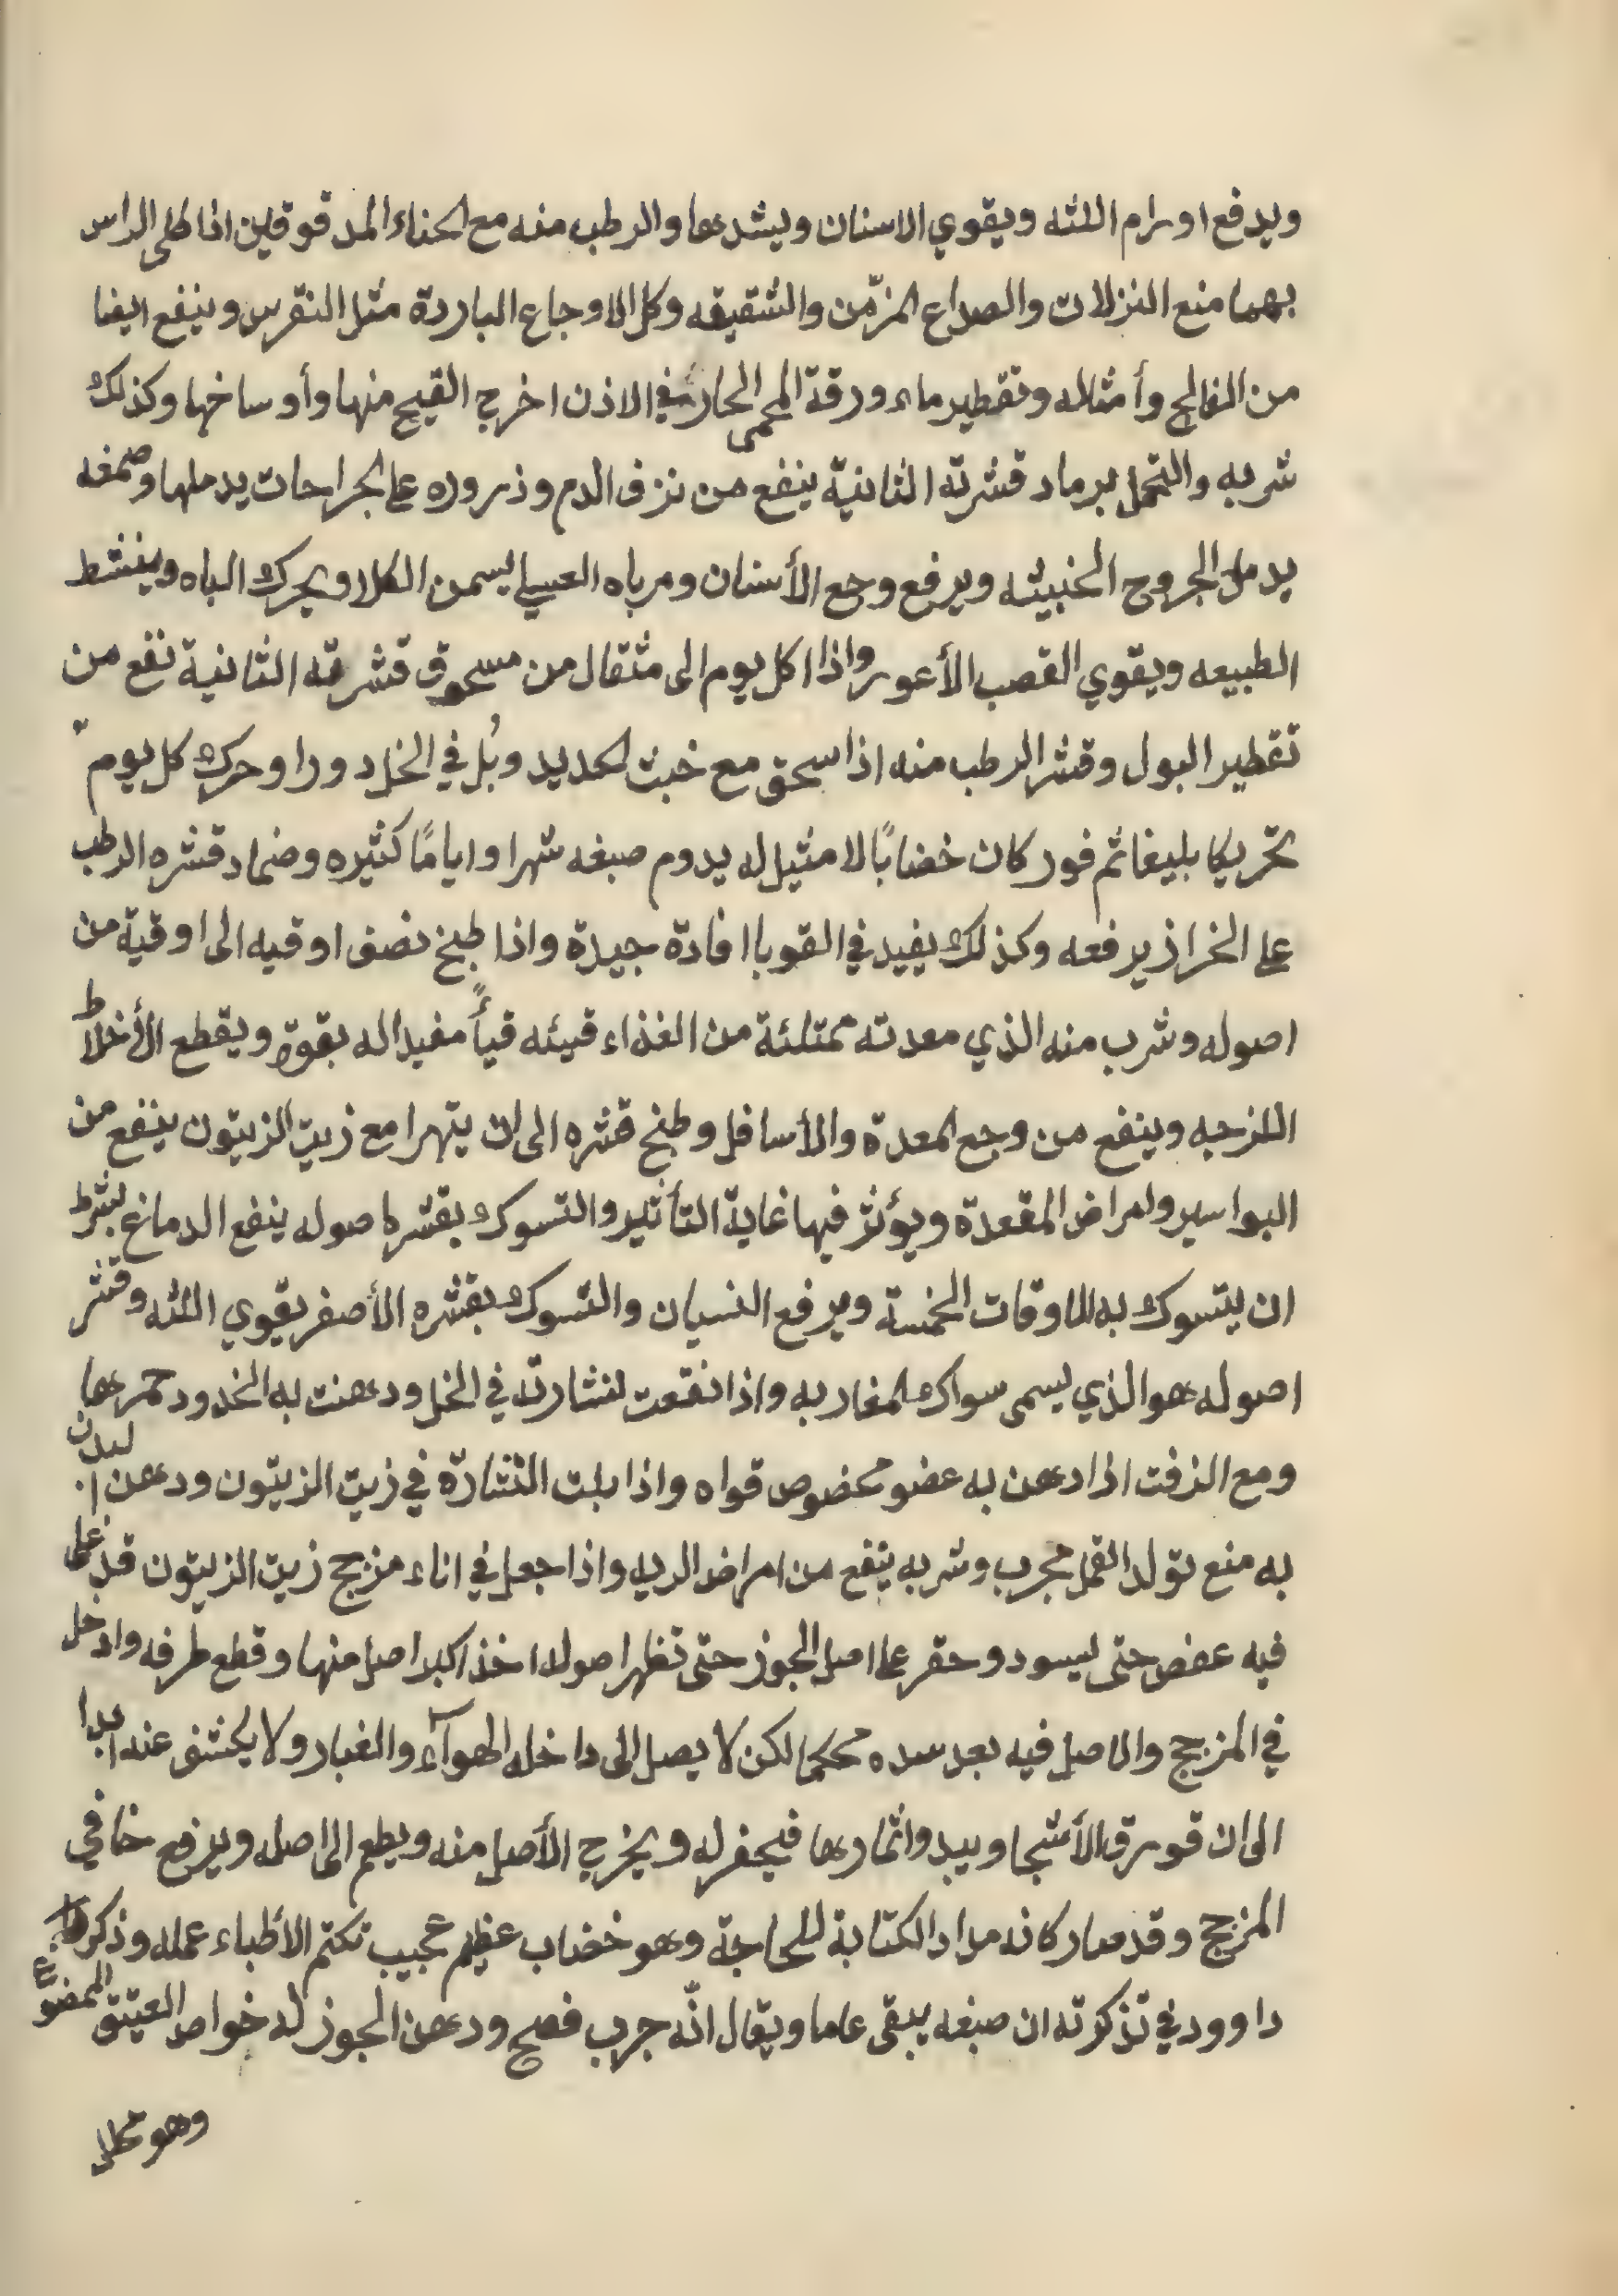 ويدفع اورام اللثه ويقوي الاسنان ويشدها والرطب منه مع الحناء المدقوقين اذا طلى الراس
بهما منع النزلات والصداع المزّمن والشقيقه وكل الاوجاع الباردة مثل النقرس وينفع ايضا
من الفالج وأمثاله وتقطير ماء ورقة المحمى الحار في الاذن اخرج القيح منها وأوساخها وكذلك
شربه والتحمل برماد قشرته الثانية ينفع من نزف الدم وذروره على الجراحات يدملها وصمغه
يدمل الجروح الخبيثه ويرفع وجع الأسنان ومرباه العسلي يسمن الكلا ويحرك الباه وينشط
الطبيعه ويقوي القصب الأعور واذا اكل يوم الى مثقال من مسحوق قشرته الثانية نفع من
تقطير البول وقشر الرطب منه اذا سحق مع خبث الحديد وبُل في الخل دورا وحرك كل يوم
تحريكا بليغا ثم فور كان خضابًا لا مثيل له يدوم صبغه شهرا واياما كثيره وضماد قشره الرطب
على الخرازير يرفعه وكذلك يفيد في القوبا افادة جيدة واذا طبخ نصف اوقيه الى اوقية من
اصوله وشرب منه الذي معدته ممتلئة من الغذاء قيئه قيأً مفيدا له بقوة ويقطع الأخلاط
اللزجه وينفع من وجع المعدة والأسافل وطبخ قشره الى ان يتهرا مع زيت الزيتون ينفع من
البواسير وامراض المقعدة ويؤثر فيها غاية التأثير والتسوك بقشر اصوله ينفع الدماغ بشرط
ان يتسوك به الاوقات الخمسة ويرفع النسيان والتسوك بقشره الأصفر يقوي اللثه وقشر
اصوله هو الذي يسمى سواك المغاربه واذا نقعت نشارته في الخل ودهنت به الخدود حمرها
ومع الزفت اذا دهن به عضو مخصوص قواه واذا بلت النشارة في زيت الزيتون ودهن البدن
به منع تولد القمل مجرب وشربه ينفع من امراض الريه واذا جعل في اناء مزجج زيت الزيتون قد غلى
فيه عفص حتى يسود وحفر على اصل الجوز حتى تظهر اصوله اخذ اكبر اصل منها وقطع طرفه وادخل
في المزجج والاصل فيه بعد سده محكما لكن لا يصل الى داخله الهوآء والغبار ولا يكشف عنه ابدا
الى ان تورق الأشجار ويبدو اثمارها فيحفر له ويخرج الأصل منه ويطم الى اصله ويرفع ما في
المزجج وقد صار كانه مداد الكتابة للحاجة وهو خضاب عظيم عجيب تكتم الاطباء عمله وذكر
داوود في تذكرته ان صبغه يبقى عاما ويقال انّه جرب فصح ودهن الجوز له خواص العتيق الممضوغ
وهو محلل